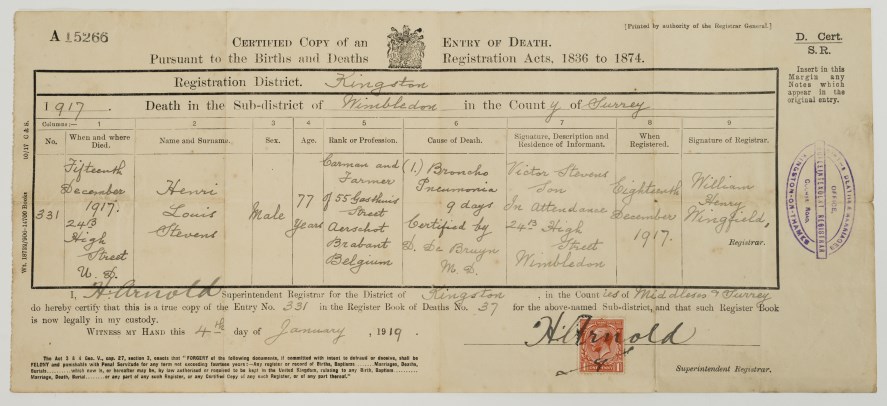 A 15266
[Printed by authority of the Registrar General.]
D. Cert.
S.R.
CERTIFIED COPY OF AN ENTRY OF DEATH.
Pursuant to the Births and Deaths Registration Acts, 1836 to 1874.
Insert in this
Margin any
Notes which
appear in the
original entry.
Registration District. Kingston
1917. Death in the Sub-district of Wimbledon in the County of Surrey
Columns:— 1 2 3 4 5 6 7 8 9
No. When and where Died. Name and Surname. Sex. Age. Rank or Profession. Cause of Death. Signature, Description and Residence of Informant. When Registered. Signature of Registrar.
331
Fifteenth
December
1917.
24B
High
Street
U.D.
Henri
Louis
Stevens
Male
77
Years
Carman and
Farmer
of 55 Gasthuis
Street
Aerschot
Brabant
Belgium
(1.) Broncho
Pneumonia
9 days
Certified by
D. De Bruyn
M.D.
Victor Stevens
Son
In Attendance
24B High
Street
Wimbledon
Eighteenth
December
1917.
William
Henry
Wingfield,
Registrar.
I, H. Arnold Superintendent Registrar for the District of Kingston, in the Counties of Middlesex & Surrey
do hereby certify that this is a true copy of the Entry No. 331 in the Register Book of Deaths No. 37 for the above-named Sub-district, and that such Register Book
is now legally in my custody.
WITNESS MY HAND this 4th day of January, 1919.
H. Arnold
Superintendent Registrar.
The Act 24 & 25 Vict., cap. 27, section 2, enacts that "FORGERY of the following documents, if committed with intent to defraud or deceive, shall be
FELONY and punishable with Penal Servitude for any term not exceeding fourteen years:—Any register or record of Births, Baptisms Marriages, Deaths,
Burials which now is, or hereafter may be, by law authorised or required to be kept in the United Kingdom, relating to any Birth, Baptism
Marriage, Death, Burial or any part of any such Register, or any Certified Copy of any such Register, or of any part thereof."
SUPERINTENDENT REGISTRAR
OFFICE.
KINGSTON-ON-THAMES